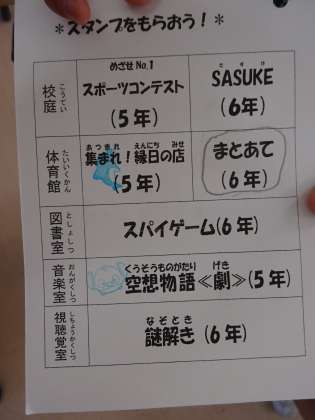 *スタンプをもらおう！*
校庭 こうてい
めざせ No.1
スポーツコンテスト
(5年)
さすけ
SASUKE
(6年)
体育館 たいいくかん
あつまれ えんにち みせ
集まれ！縁日の店
(5年)
まとあて
(6年)
図書室 としょしつ
スパイゲーム(6年)
音楽室 おんがくしつ
くうそうものがたり げき
空想物語≪劇≫(5年)
視聴覚室 しちょうかくしつ
なぞとき
謎解き (6年)